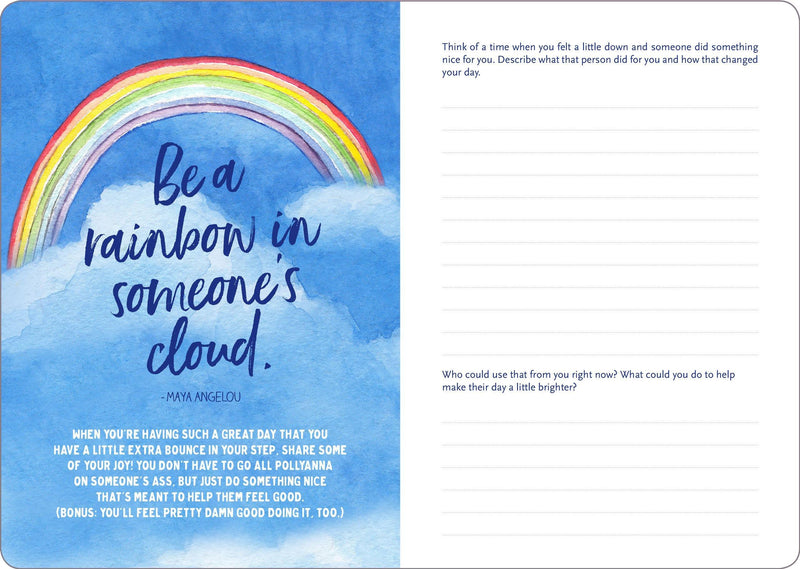 Be a
rainbow in
someone's
cloud.
- MAYA ANGELOU
WHEN YOU'RE HAVING SUCH A GREAT DAY THAT YOU
HAVE A LITTLE EXTRA BOUNCE IN YOUR STEP, SHARE SOME
OF YOUR JOY! YOU DON'T HAVE TO GO ALL POLLYANNA
ON SOMEONE'S ASS, BUT JUST DO SOMETHING NICE
THAT'S MEANT TO HELP THEM FEEL GOOD.
(BONUS: YOU'LL FEEL PRETTY DAMN GOOD DOING IT, TOO.)
Think of a time when you felt a little down and someone did something
nice for you. Describe what that person did for you and how that changed
your day.
Who could use that from you right now? What could you do to help
make their day a little brighter?